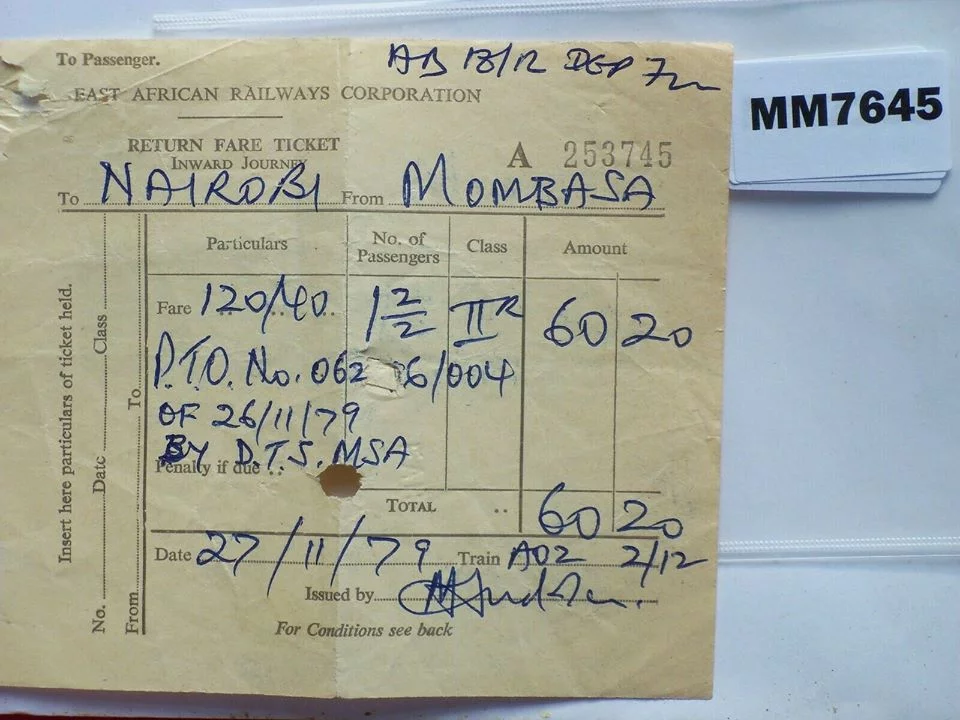 To Passenger.
EAST AFRICAN RAILWAYS CORPORATION
RETURN FARE TICKET
INWARD JOURNEY
A 253745
MM7645
To NAIROBI From MOMBASA
Particulars No. of Passengers Class Amount
Fare 120/40 1 2/2 II R 60 20
P.T.O. No. 062 6/004
OF 26/11/79
BY D.T.S. MSA
Penalty if due ..
TOTAL .. 60 20
Date 27/11/79 Train A02 2/12
Issued by
For Conditions see back
Insert here particulars of ticket held.
No. Date Class
From To